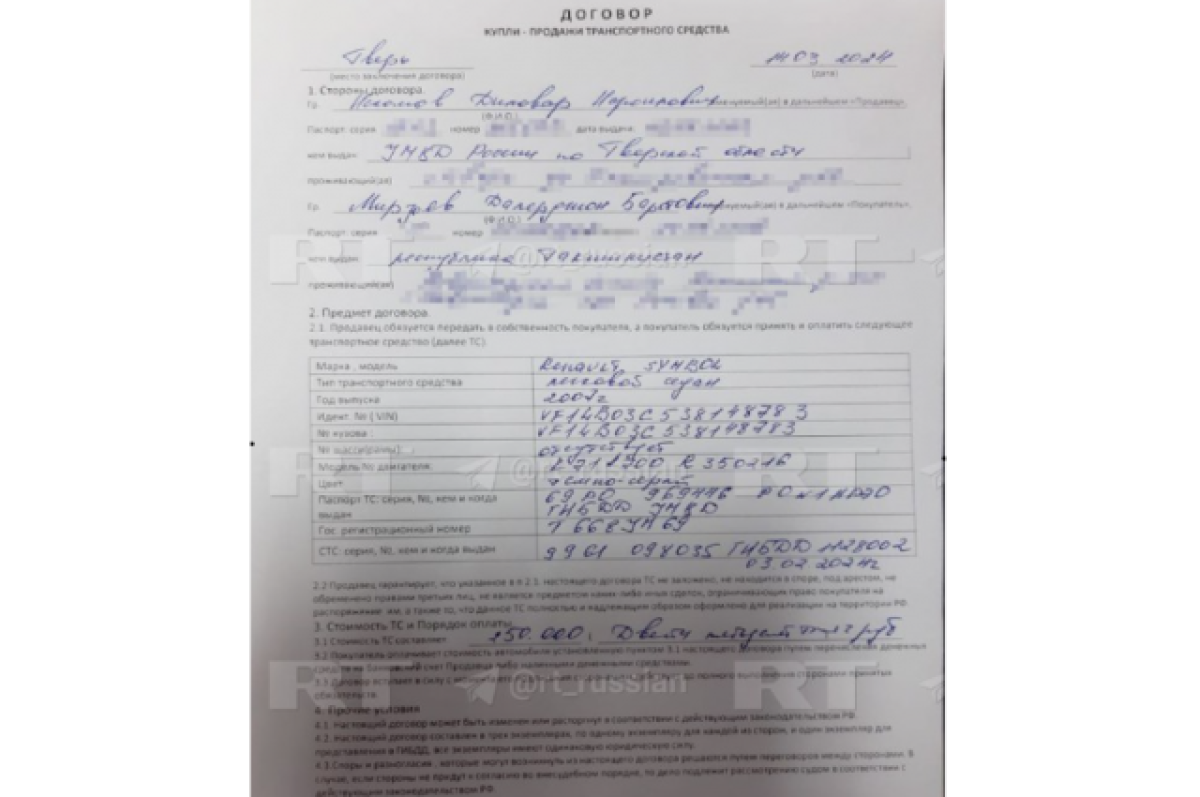 ДОГОВОР
КУПЛИ - ПРОДАЖИ ТРАНСПОРТНОГО СРЕДСТВА
Тверь 14 03 2024
(место заключения договора) (дата)
1. Стороны договора.
Гр. Исломов Диловар именуемый(ая) в дальнейшем «Продавец»,
(Ф.И.О.)
Паспорт: серия номер дата выдачи:
кем выдан УМВД России по Тверской области
проживающий(ая)
Гр. Далерджон именуемый(ая) в дальнейшем «Покупатель»,
(Ф.И.О.)
Паспорт: серия номер
кем выдан республика Таджикистан
проживающий(ая)
2. Предмет договора.
2.1. Продавец обязуется передать в собственность покупателя, а покупатель обязуется принять и оплатить следующее
транспортное средство (далее ТС).
Марка, модель Renault SYMBOL
Тип транспортного средства легковой седан
Год выпуска 2007г
Идент. № (VIN) VF1LB03C538148783
№ кузова: VF1LB03C538148783
№ шасси(рамы): отсутствует
Модель № двигателя
Цвет темно-серый
Паспорт ТС: серия, №, кем и когда 69 РО 969446
выдан ГИБДД УМВД
Гос. регистрационный номер Т 668 УМ 69
СТС: серия, №, кем и когда выдан 99 61 098035 ГИБДД 1128002
03.02.2024г
2.2 Продавец гарантирует, что указанное в п 2.1. настоящего договора ТС не заложено, не находится в споре, под арестом, не
обременено правами третьих лиц, не является предметом каких-либо иных сделок, ограничивающих право покупателя на
распоряжение им, а также то, что данное ТС полностью и надлежащим образом оформлено для реализации на территории РФ.
3. Стоимость ТС и Порядок оплаты.
3.1 Стоимость ТС составляет 250.000, Двести пятьдесят тысяч руб
3.2 Покупатель оплачивает стоимость автомобиля установленную пунктом 3.1 настоящего договора путем перечисления денежных
средств на банковский счет Продавца либо наличными денежными средствами.
3.3 Договор вступает в силу с момента его подписания сторонами и действует до полного выполнения сторонами принятых
обязательств.
4. Прочие условия
4.1. Настоящий договор может быть изменен или расторгнут в соответствии с действующим законодательством РФ.
4.2. Настоящий договор составлен в трех экземплярах, по одному экземпляру для каждой из сторон, и один экземпляр для
представления в ГИБДД, все экземпляры имеют одинаковую юридическую силу.
4.3.Споры и разногласия, которые могут возникнуть из настоящего договора решаются путем переговоров между сторонами. В
случае, если стороны не придут к согласию во внесудебном порядке, то дело подлежит рассмотрению судом в соответствии с
действующим законодательством РФ.
RT @rt_russian RT
RT @rt_russian RT
RT @rt_russian RT